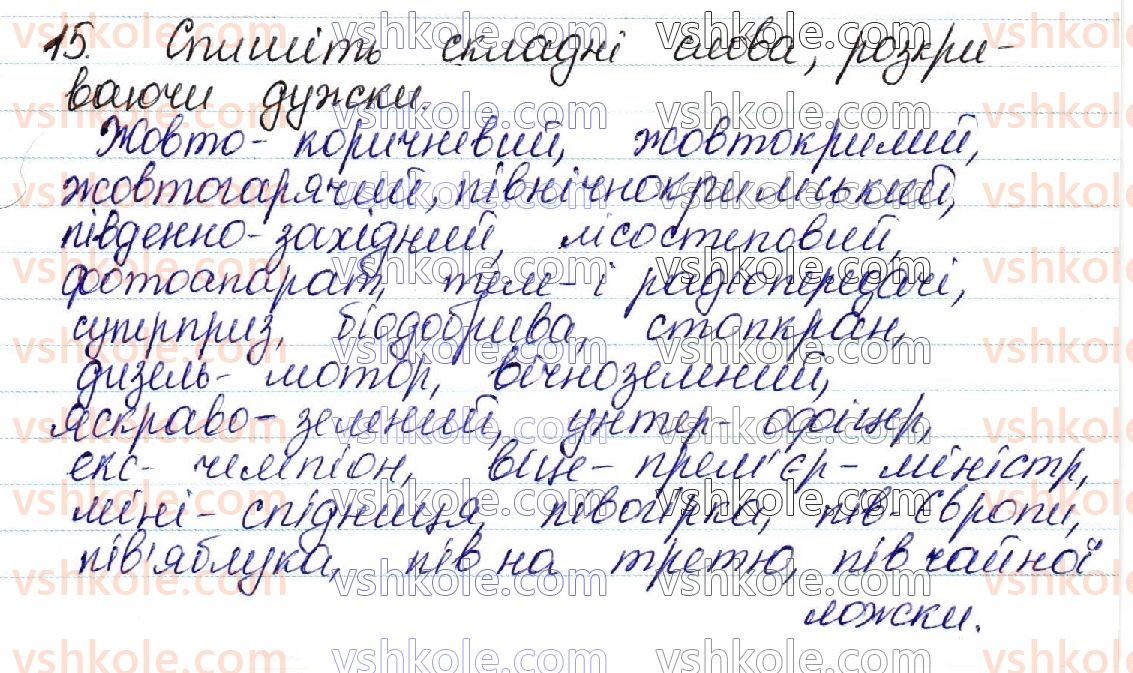 15. Спишіть складні слова, розкри-
ваючи дужки.
Жовто-коричневий, жовтокрилий,
жовтогарячий, північнокримський,
південно-західний, лісостеповий,
фотоапарат, теле- і радіопередачі,
суперприз, біодобрива, стопкран,
дизель-мотор, вічнозелений,
яскраво-зелений, унтер-офіцер,
екс-чемпіон, віце-прем'єр-міністр,
міні-спідниця, півогірка, пів-Європи,
пів'яблука, пів на третю, пів чайної
ложки.